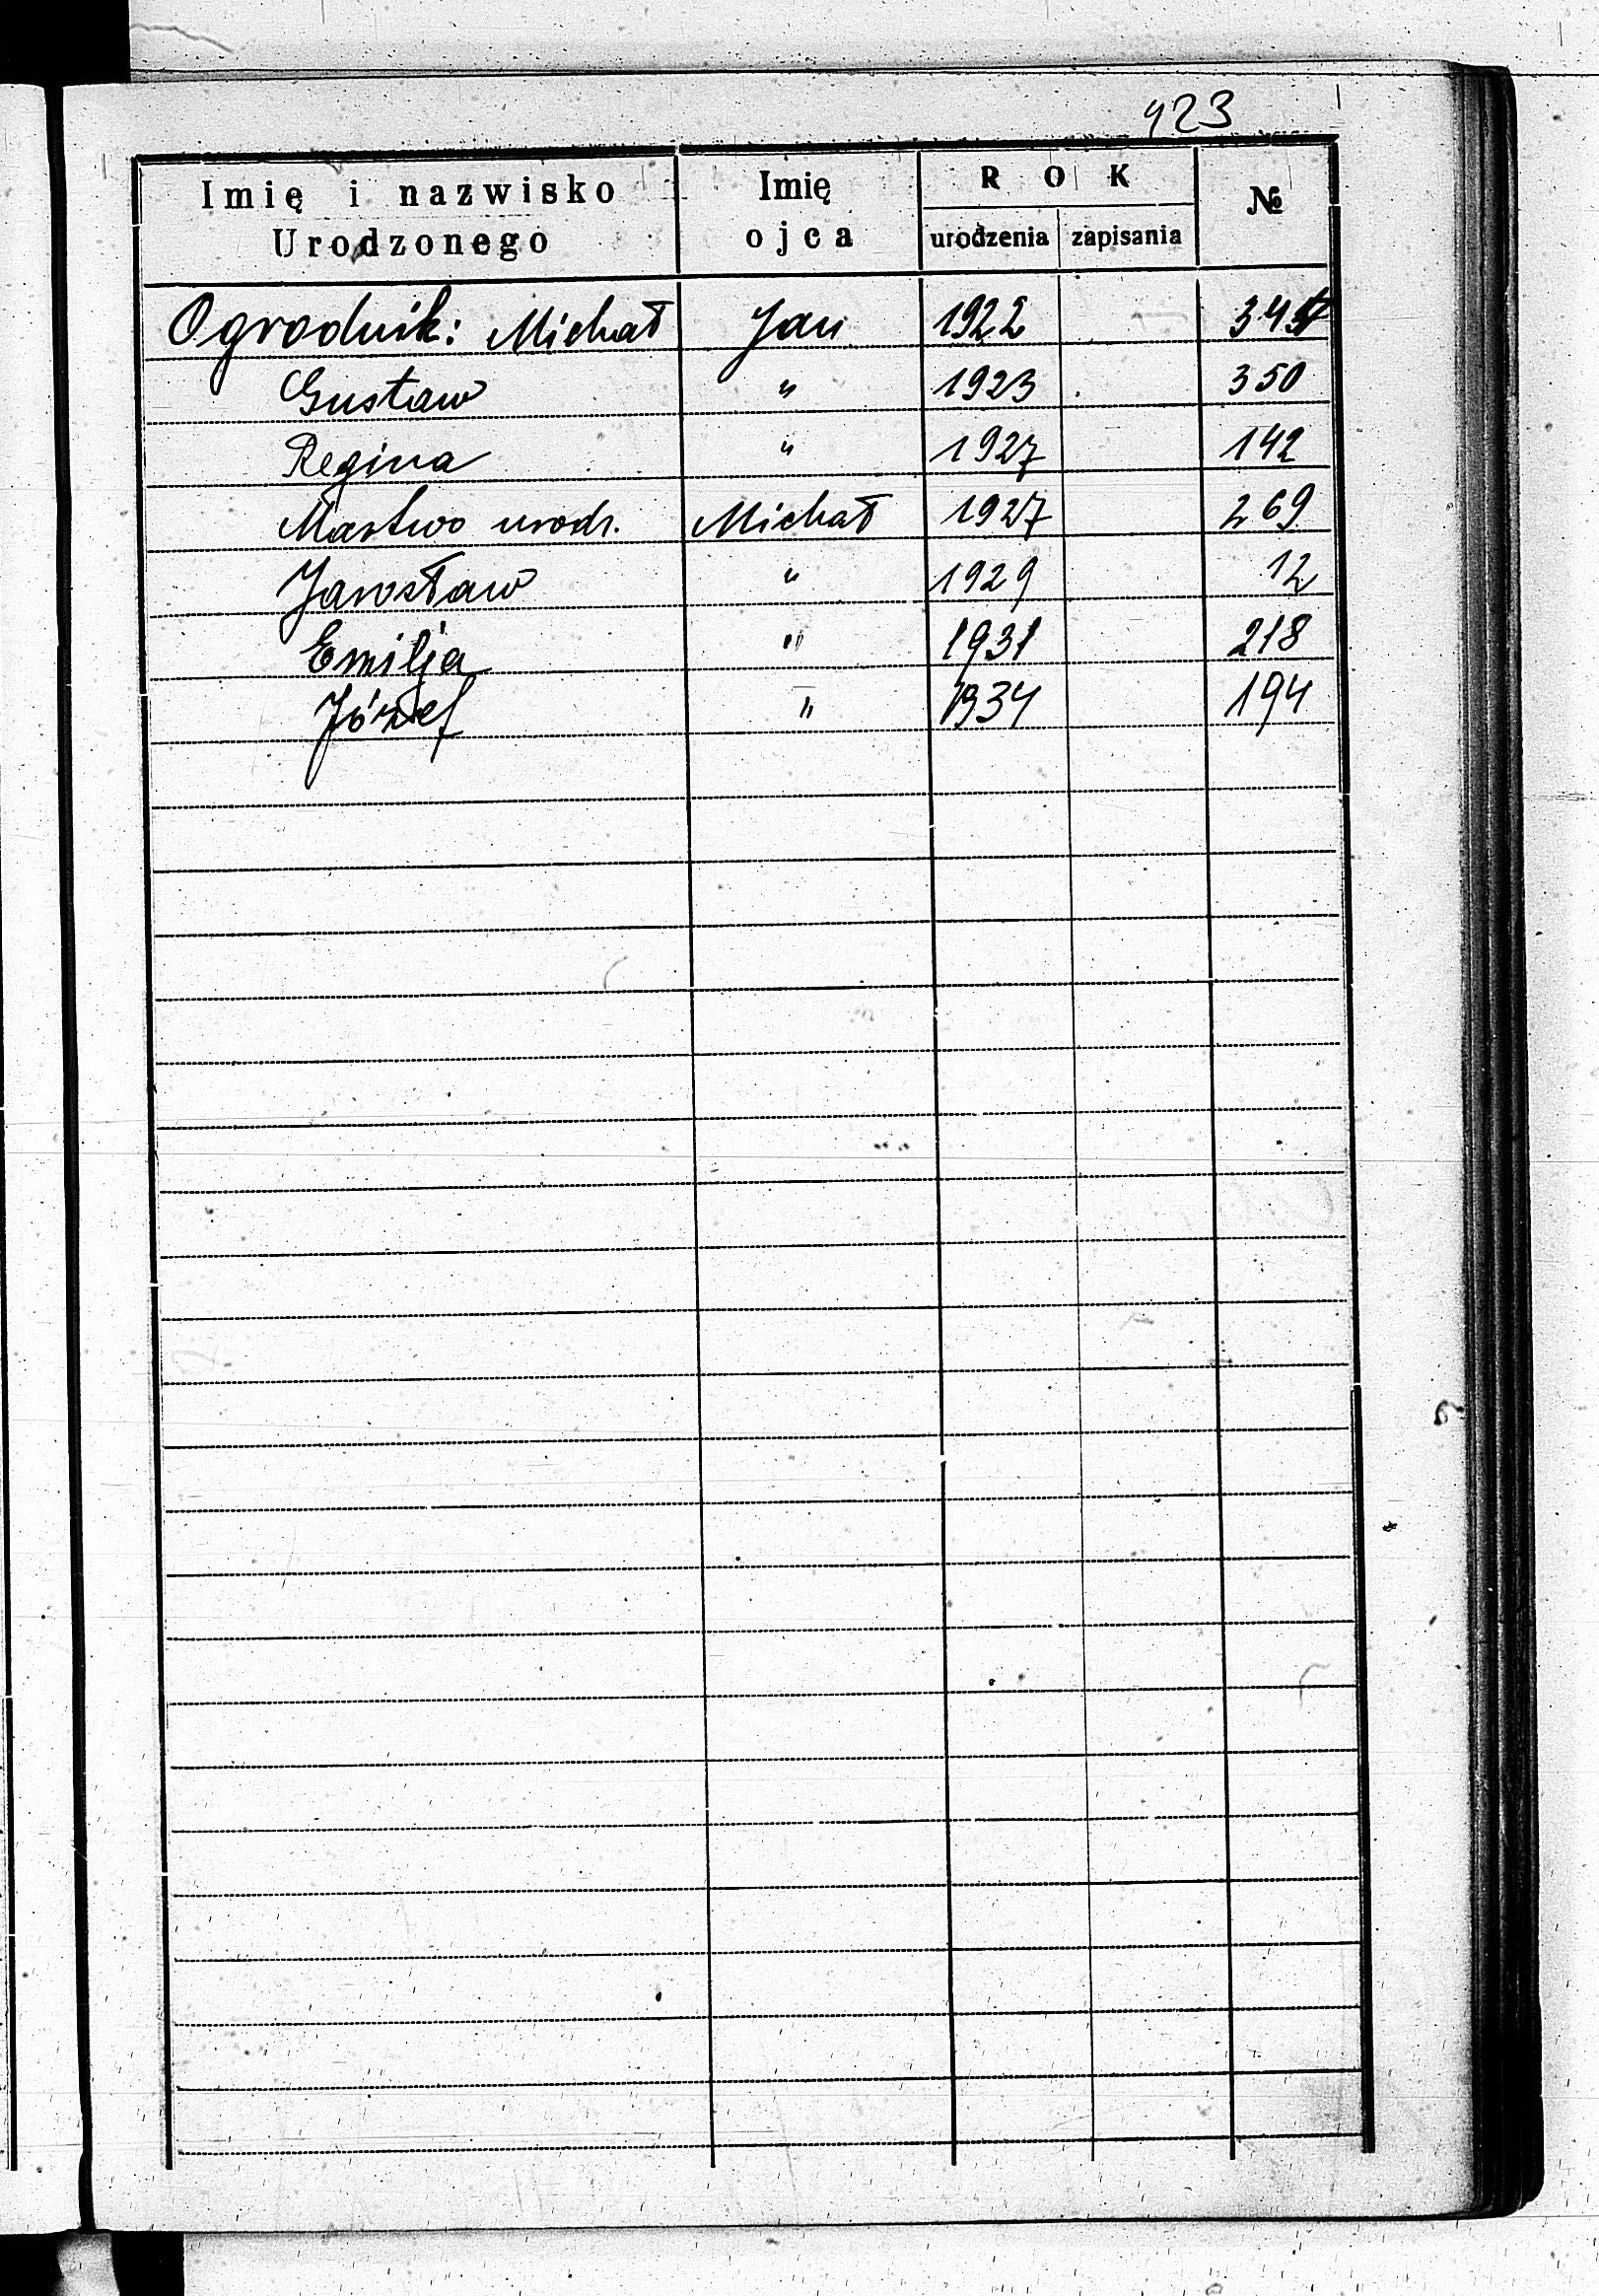 423
Imię i nazwisko Urodzonego | Imię ojca | ROK urodzenia | zapisania | №
Ogrodnik: Michał Jan 1922
Gustaw " 1923 350
Regina " 1927 142
Martwo urodz. Michał 1927 269
Jarosław " 1929 12
Emilja " 1931 218
Józef " 1934 194